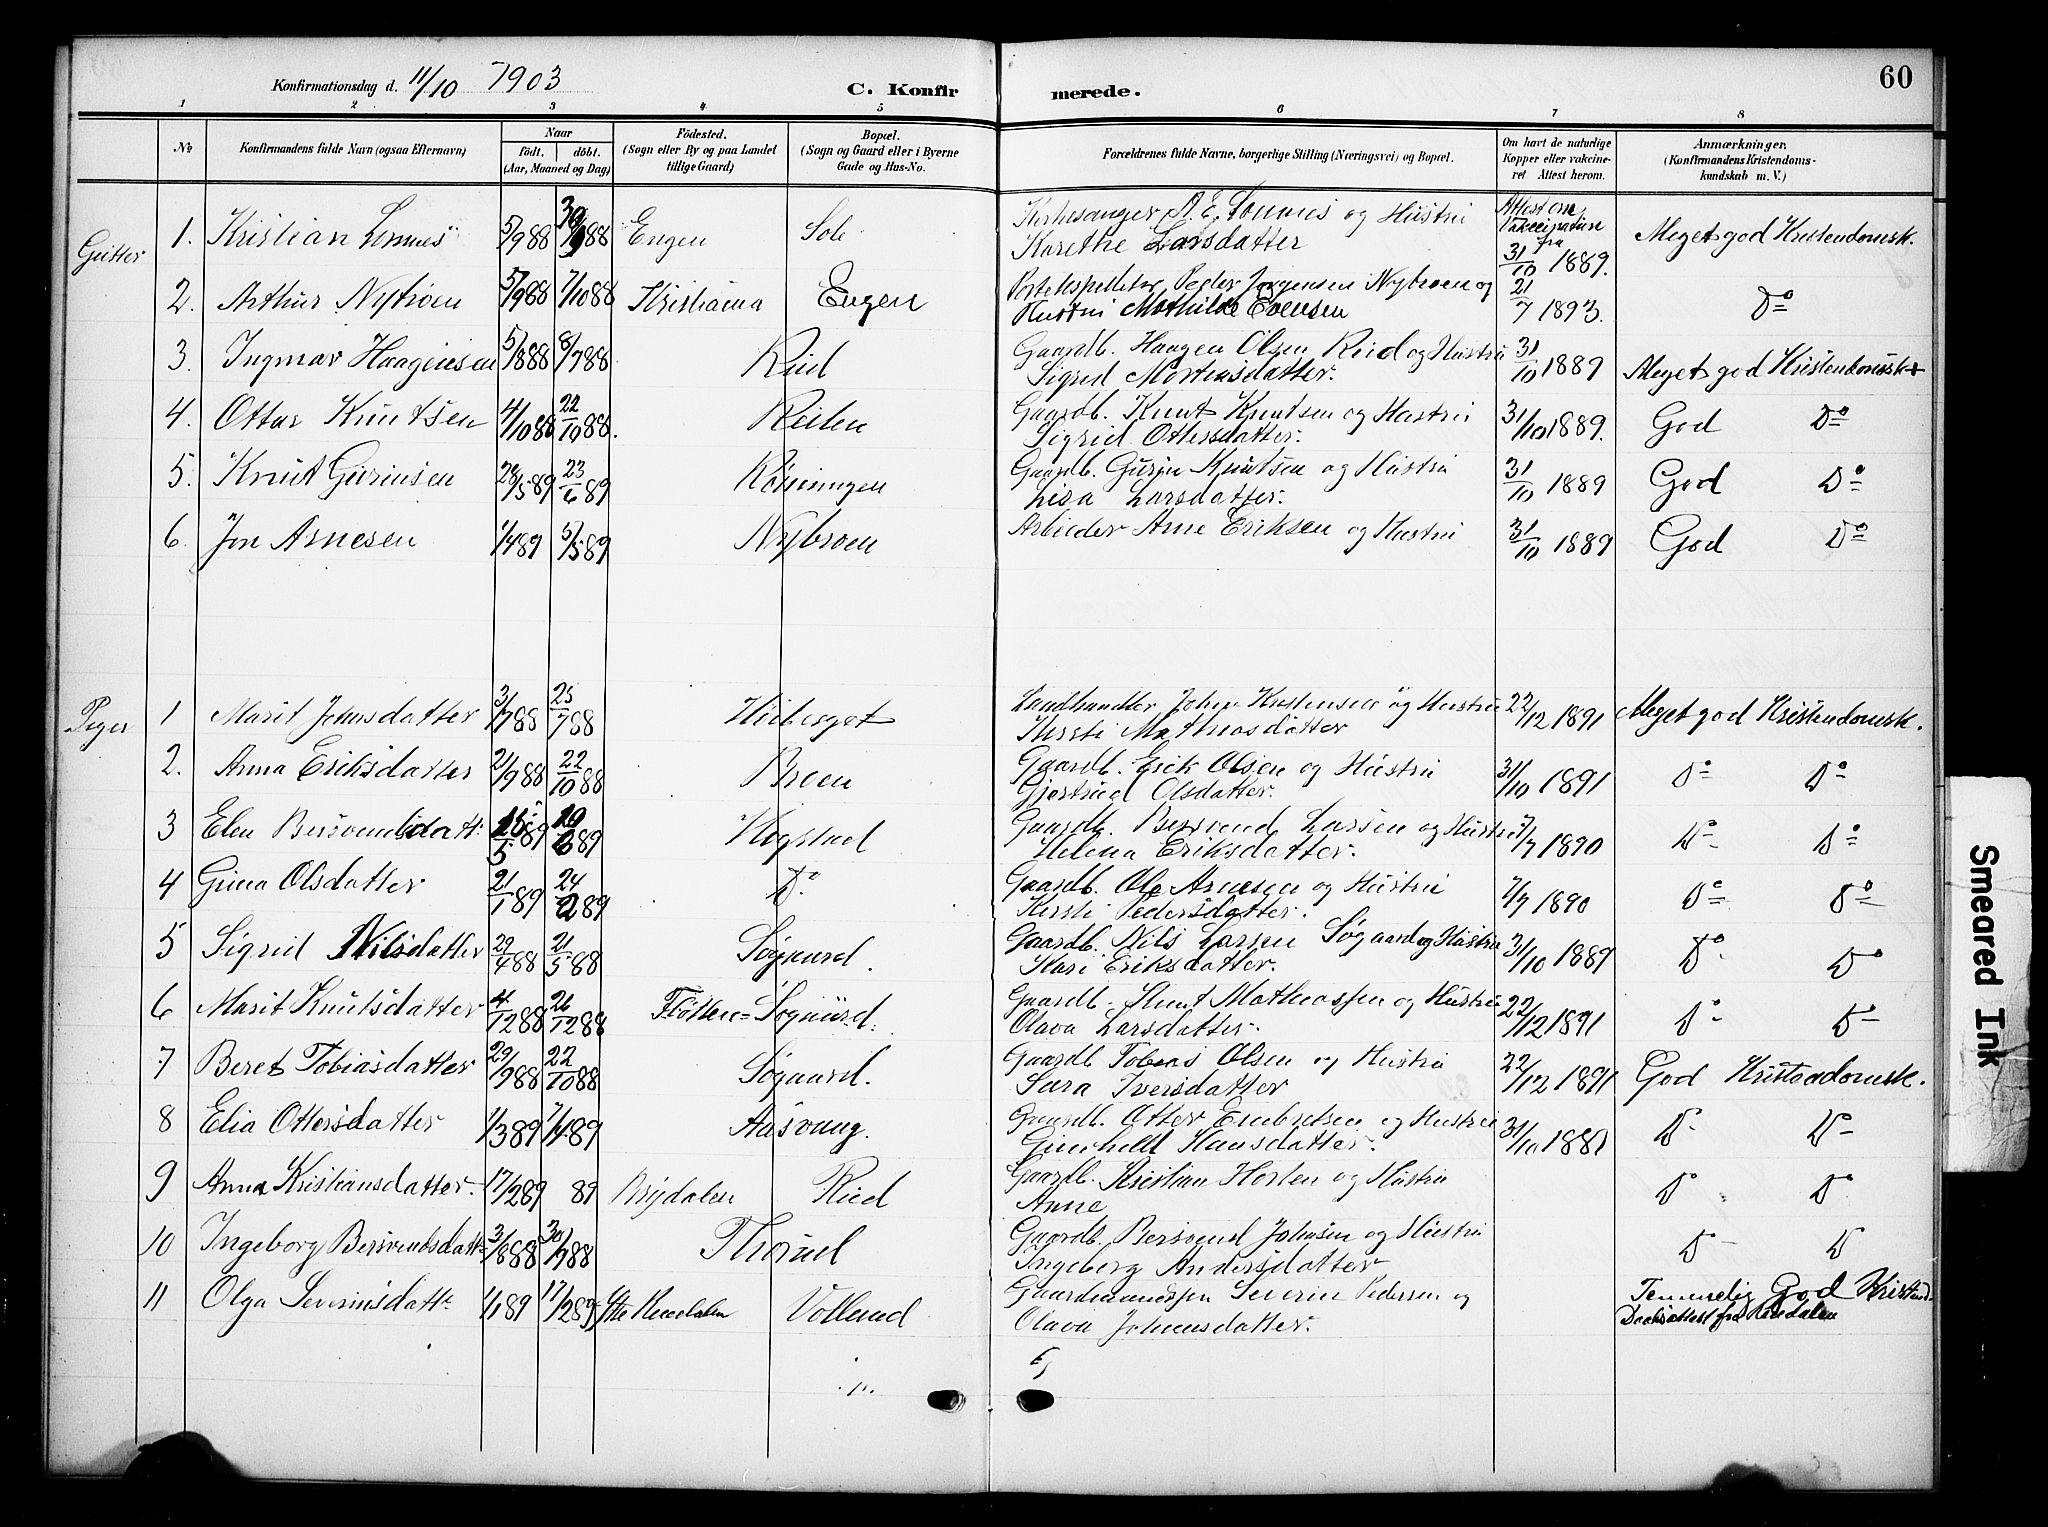 Konfirmationsdag d. 11/10 1903
C. Konfirmerede.
60
1 2 3 4 5 6 7 8
No
Konfirmandens fulde Navn (ogsaa Efternavn)
Naar
födt. döbt.
(Aar, Maaned og Dag)
Födested.
(Sogn eller By og paa Landet
tillige Gaard)
Bopæl.
(Sogn og Gaard eller i Byerne
Gade og Hus-No.
Forældrenes fulde Navne, borgerlige Stilling (Næringsvei) og Bopæl.
Om havt de naturlige
Kopper eller vakcine-
ret Attest herom.
Anmærkninger.
(Konfirmandens Kristendoms-
kundskab m. V.)
Gutter
1. Kristian 5/9 88 88 Engen Sole Kirkesanger A. E. og Hustru Karethe Larsdatter Attest om Vakcination fra 31/10 1889. Meget god Kristendomsk.
2. Arthur Nybroen 5/9 88 7/10 88 Kristiania Engen Jørgensen Nybroen og Hustru Mathilde Evensen 21/7 1893. Do
3. Ingmar Haagensen 5/8 88 8/7 88 Ried Gaardb. Haagen Olsen Ried og Hustru Sigrid Mortensdatter. 31/10 1889 Meget god Kristendomsk
4. Ottar Knutsen 4/10 88 22/10 88. Gaardb. Knut Knutsen og Hustru Sigrid Ottersdatter. 31/10 1889. God Do
5. Knut Gurinsen 28/5 89 23/6 89 Gaardb. Knutsen og Hustru Lisa Larsdatter. 31/10 1889 God Do
6. Jon Arnesen 1/4 89 5/5 89 Nybroen Arbeider Arne Eriksen og Hustru 31/10 1889 God Do
Piger
1 Marit Johnsdatter 3/7 88 25/7 88 Landhandler John Kristensen og Hustru Kirsti Mathiasdatter 22/12 1891 Meget god Kristendomsk.
2. Anna Eriksdatter 2/9 88 22/10 88 Broen Gaardb. Erik Olsen og Hustru Gjertrud Olsdatter. 31/10 1891 Do Do
3 Elen Bersvendsdatt: 89 89 Høgstad Gaardb. Bersvend Larsen og Hustru Helena Eriksdatter. 7/7 1890 Do Do
4 Gina Olsdatter 21/1 89 24/2 89 Do Gaardb. Ole Arnesen og Hustru Kirsti Pedersdatter. 7/7 1890 Do Do
5 Sigrid Nilsdatter 29/4 88 21/5 88 Søgaard. Gaardb. Nils Larsen Søgaard og Hustru Kari Eriksdatter. 31/10 1889 Do Do
6 Marit Knutsdatter 4/12 88 26/12 88 Flötten = Søgaard. Gaardb. Knut Mathiassen og Hustru Olava Larsdatter. 22/12 1891 Do Do
7 Beret Tobiasdatter 29/9 88 22/10 88 Søgaard. Gaardb. Tobias Olsen og Hustru Sara Iversdatter 22/12 1891 God Kristendomsk.
8 Elia Ottersdatter 1/3 89 7/4 89 Aasvang. Gaardb. Otter Embretsen og Hustru Gunhild Hansdatter. 31/10 1889 Do Do
9 Anna Kristiansdatter. 17/2 89 89 Brydalen Ried Gaardb. Kristian Horten og Hustru Anne Do Do
10 Ingeborg Bersvendsdatt: 3/8 88 30/9 88 Gaardb. Bersvend Johnsen og Hustru Ingeborg Andersdatter Do Do
11 Olga Severinsdatt: 1/1 89 17/2 89 Ytre Rendalen Volland Severin Pedersen og Olava Johannesdatter. Temmelig God Kristend. Daabsattest fra Rendalen
Smeared Ink